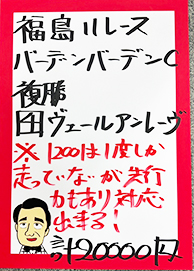 福島11レース
バーデンバーデンC
複勝
田ヴェールアンレーヴ
※1200は1度しか
走っていないが先行
力もあり対応
出来る!
120000円